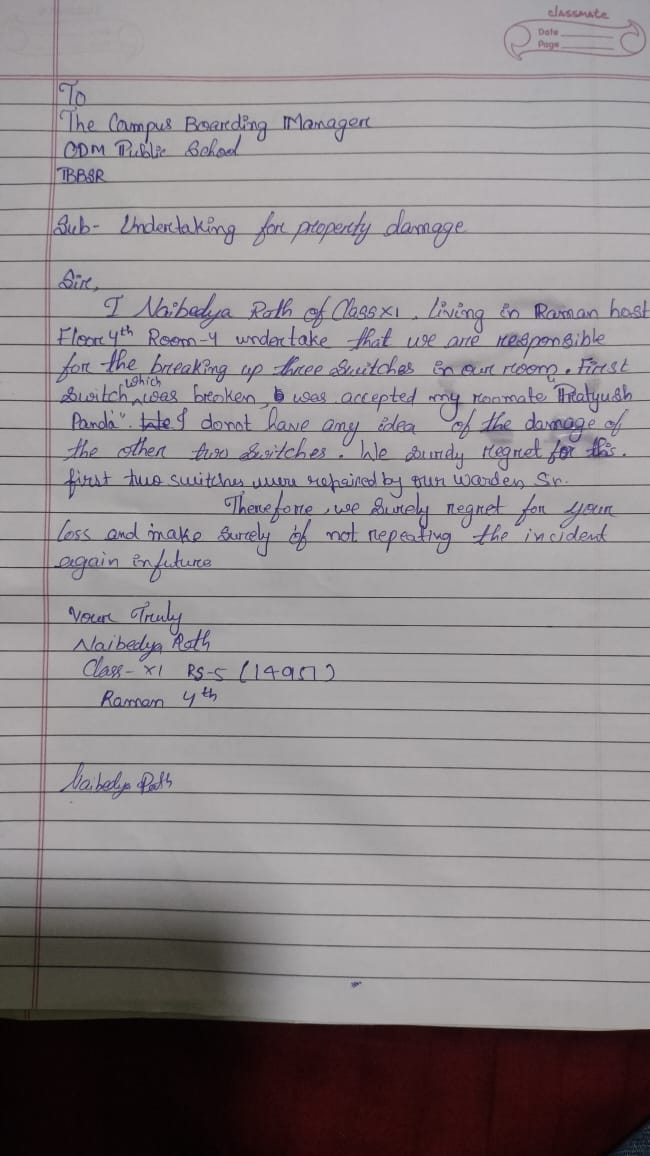 classmate
Date
Page
To
The Campus Boarding Manager
ODM Public School
BBSR
Sub- Undertaking for property damage
Sir,
I Naibedya Rath of Class XI, living in Raman host
Floor 4th Room-4 undertake that we are responsible
for the breaking up three switches in our room. First
switch which was broken, was accepted my roomate "Pratyush
Panda". I donot have any idea of the damage of
the other two switches. We surely regret for this.
first two switches were repaired by our warden Sir.
Therefore, we surely regret for your
loss and make surely of not repeating the incident
again in future
Your Truly
Naibedya Rath
Class- XI RS-5 (14951)
Raman 4th
Naibedya Rath